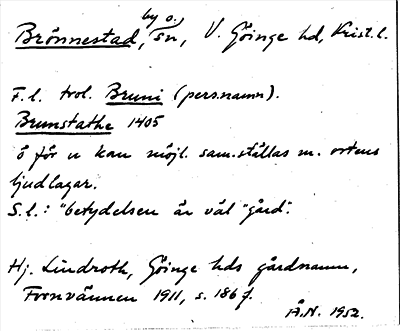 by o.
Brönnestad, sn, V. Göinge hd, Krist. l.
F. l. trol. Bruni (persnamn).
Brunstathe 1405
ö för u kan möjl. sam.ställas m. ortens
ljudlagar.
S. l.: "betydelsen är väl "gård".
Hj. Lindroth, Göinge hds gårdnamn,
Fornvännen 1911, s. 186 f.
Å.N. 1952.